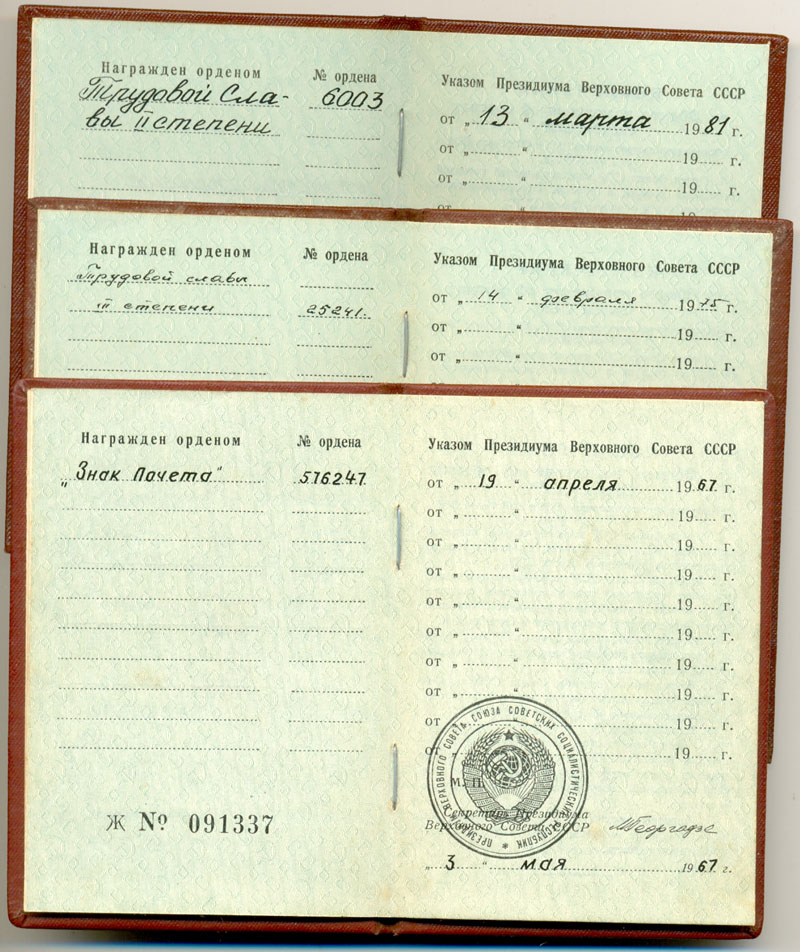 Награжден орденом № ордена
Трудовой Сла- 6003
вы II степени
Указом Президиума Верховного Совета СССР
от „ 13 “ марта 1981 г.
от „ “ 19 г.
от „ “ 19 г.
от „ “ 19
Награжден орденом № ордена
Трудовой славы
III степени 25241.
Указом Президиума Верховного Совета СССР
от „ 14 “ февраля 1975 г.
от „ “ 19 г.
от „ “ 19 г.
Награжден орденом № ордена
„Знак Почета“ 576247
Указом Президиума Верховного Совета СССР
от „ 19 “ апреля 1967 г.
от „ “ 19 г.
от „ “ 19 г.
от „ “ 19 г.
от „ “ 19 г.
от „ “ 19 г.
от „ “ 19 г.
от „ “ 19 г.
от „ “ 19 г.
от „ “ 19 г.
ПРЕЗИДИУМ ВЕРХОВНОГО СОВЕТА СОЮЗА СОВЕТСКИХ СОЦИАЛИСТИЧЕСКИХ РЕСПУБЛИК
М. П.
Секретарь Президиума
Верховного Совета СССР МГеоргадзе
„ 3 “ мая 1967 г.
Ж № 091337